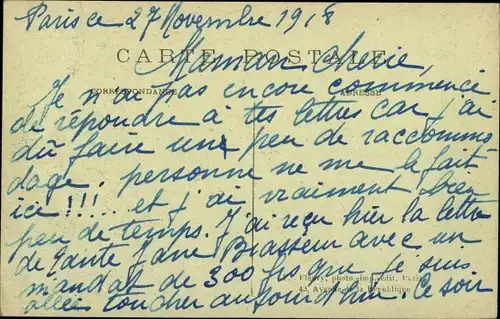 Paris ce 27 Novembre 1918
CARTE POSTALE
Maman chérie,
CORRESPONDANCE
ADRESSE
Je n'ai pas encore commencé
de répondre à tes lettres car j'ai
dû faire une peu de raccommo
dage. personne ne me le fait
ici !!!... et j'ai vraiment bien
peu de temps. J'ai reçu hier la lettre
de tante Jane Brasseur avec un
Fleury, photo-imp. édit. Paris
mandat de 300 frs que je suis
43, Avenue de la République
allée toucher aujourd'hui. Ce soir